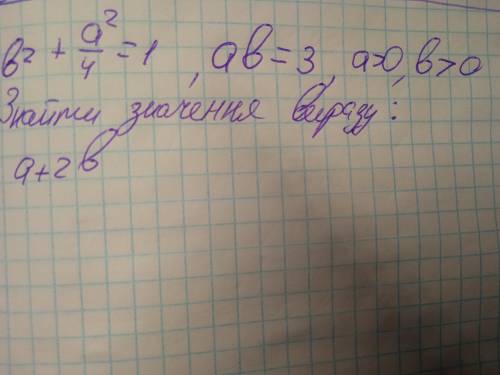 в² + a²/4 = 1, aв = 3, a>0, в>0
Знайти значення виразу:
a+2в